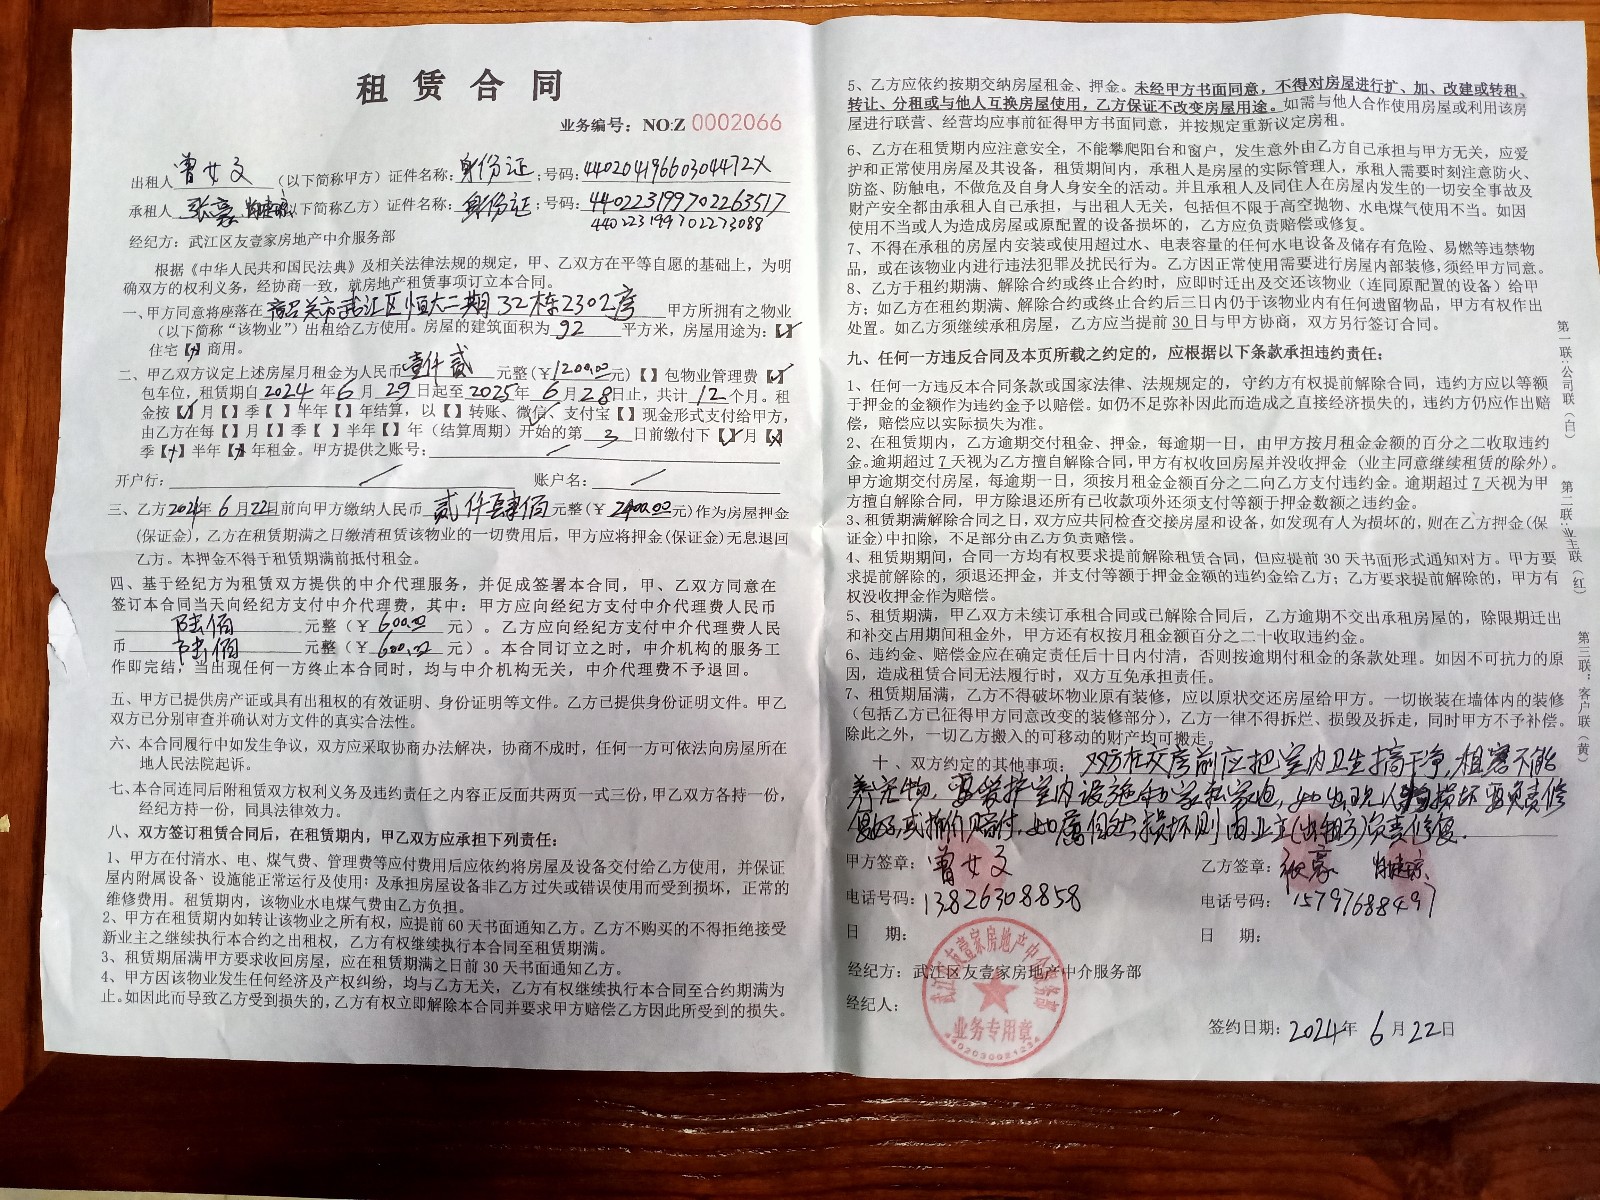 租 赁 合 同
业务编号：NO:Z 0002066
出租人 曾女文 （以下简称甲方）证件名称：身份证；号码：44020419660304472X
承租人 张豪 以下简称乙方）证件名称：身份证；号码：440223199702263517
440223199702273088
经纪方：武江区友壹家房地产中介服务部
根据《中华人民共和国民法典》及相关法律法规的规定，甲、乙双方在平等自愿的基础上，为明
确双方的权利义务，经协商一致，就房地产租赁事项订立本合同。
一、甲方同意将座落在 韶关市武江区恒大二期32栋2302房 甲方所拥有之物业
（以下简称“该物业”）出租给乙方使用。房屋的建筑面积为 92 平方米，房屋用途为：【✓】
住宅【】商用。
二、甲乙双方议定上述房屋月租金为人民币 壹仟贰 元整（￥1200.00元）【】包物业管理费【✓】
包车位，租赁期自2024年6月29日起至2025年6月28日止，共计12个月。租
金按【✓】月【】季【】半年【】年结算，以【】转账、微信、支付宝【】现金形式支付给甲方，
由乙方在每【】月【】季【】半年【】年（结算周期）开始的第 3 日前缴付下【✓】月【】
季【】半年【】年租金。甲方提供之账号：
开户行： 账户名：
三、乙方2024年6月22日前向甲方缴纳人民币 贰仟肆佰 元整（￥2400.00元）作为房屋押金
（保证金），乙方在租赁期满之日缴清租赁该物业的一切费用后，甲方应将押金（保证金）无息退回
乙方。本押金不得于租赁期满前抵付租金。
四、基于经纪方为租赁双方提供的中介代理服务，并促成签署本合同，甲、乙双方同意在
签订本合同当天向经纪方支付中介代理费，其中：甲方应向经纪方支付中介代理费人民币
陆佰 元整（￥600.00 元）。乙方应向经纪方支付中介代理费人民
币 陆佰 元整（￥600.00 元）。本合同订立之时，中介机构的服务工
作即完结，当出现任何一方终止本合同时，均与中介机构无关，中介代理费不予退回。
五、甲方已提供房产证或具有出租权的有效证明、身份证明等文件。乙方已提供身份证明文件。甲乙
双方已分别审查并确认对方文件的真实合法性。
六、本合同履行中如发生争议，双方应采取协商办法解决，协商不成时，任何一方可依法向房屋所在
地人民法院起诉。
七、本合同连同后附租赁双方权利义务及违约责任之内容正反面共两页一式三份，甲乙双方各持一份，
经纪方持一份，同具法律效力。
八、双方签订租赁合同后，在租赁期内，甲乙双方应承担下列责任：
1、甲方在付清水、电、煤气费、管理费等应付费用后应依约将房屋及设备交付给乙方使用，并保证
屋内附属设备、设施能正常运行及使用；及承担房屋设备非乙方过失或错误使用而受到损坏，正常的
维修费用。租赁期内，该物业水电煤气费由乙方负担。
2、甲方在租赁期内如转让该物业之所有权，应提前60天书面通知乙方。乙方不购买的不得拒绝接受
新业主之继续执行本合约之出租权，乙方有权继续执行本合同至租赁期满。
3、租赁期届满甲方要求收回房屋，应在租赁期满之日前30天书面通知乙方。
4、甲方因该物业发生任何经济及产权纠纷，均与乙方无关，乙方有权继续执行本合同至合约期满为
止。如因此而导致乙方受到损失的，乙方有权立即解除本合同并要求甲方赔偿乙方因此所受到的损失。
5、乙方应依约按期交纳房屋租金、押金。未经甲方书面同意，不得对房屋进行扩、加、改建或转租、
转让、分租或与他人互换房屋使用，乙方保证不改变房屋用途。如需与他人合作使用房屋或利用该房
屋进行联营、经营均应事前征得甲方书面同意，并按规定重新议定房租。
6、乙方在租赁期内应注意安全，不能攀爬阳台和窗户，发生意外由乙方自己承担与甲方无关，应爱
护和正常使用房屋及其设备，租赁期间内，承租人是房屋的实际管理人，承租人需要时刻注意防火、
防盗、防触电，不做危及自身人身安全的活动。并且承租人及同住人在房屋内发生的一切安全事故及
财产安全都由承租人自己承担，与出租人无关，包括但不限于高空抛物、水电煤气使用不当。如因
使用不当或人为造成房屋或原配置的设备损坏的，乙方应负责赔偿或修复。
7、不得在承租的房屋内安装或使用超过水、电表容量的任何水电设备及储存有危险、易燃等违禁物
品，或在该物业内进行违法犯罪及扰民行为。乙方因正常使用需要进行房屋内部装修，须经甲方同意。
8、乙方于租约期满、解除合约或终止合约时，应即时迁出及交还该物业（连同原配置的设备）给甲
方；如乙方在租约期满、解除合约或终止合约后三日内仍于该物业内有任何遗留物品，甲方有权作出
处置。如乙方须继续承租房屋，乙方应当提前30日与甲方协商，双方另行签订合同。
九、任何一方违反合同及本页所载之约定的，应根据以下条款承担违约责任：
1、任何一方违反本合同条款或国家法律、法规规定的，守约方有权提前解除合同，违约方应以等额
于押金的金额作为违约金予以赔偿。如仍不足弥补因此而造成之直接经济损失的，违约方仍应作出赔
偿，赔偿应以实际损失为准。
2、在租赁期内，乙方逾期交付租金、押金，每逾期一日，由甲方按月租金金额的百分之二收取违约
金。逾期超过7天视为乙方擅自解除合同，甲方有权收回房屋并没收押金（业主同意继续租赁的除外）。
甲方逾期交付房屋，每逾期一日，须按月租金金额百分之二向乙方支付违约金。逾期超过7天视为甲
方擅自解除合同，甲方除退还所有已收款项外还须支付等额于押金数额之违约金。
3、租赁期满解除合同之日，双方应共同检查交接房屋和设备，如发现有人为损坏的，则在乙方押金（保
证金）中扣除，不足部分由乙方负责赔偿。
4、租赁期期间，合同一方均有权要求提前解除租赁合同，但应提前30天书面形式通知对方。甲方要
求提前解除的，须退还押金，并支付等额于押金金额的违约金给乙方；乙方要求提前解除的，甲方有
权没收押金作为赔偿。
5、租赁期满，甲乙双方未续订承租合同或已解除合同后，乙方逾期不交出承租房屋的，除限期迁出
和补交占用期间租金外，甲方还有权按月租金额百分之二十收取违约金。
6、违约金、赔偿金应在确定责任后十日内付清，否则按逾期付租金的条款处理。如因不可抗力的原
因，造成租赁合同无法履行时，双方互免承担责任。
7、租赁期届满，乙方不得破坏物业原有装修，应以原状交还房屋给甲方。一切嵌装在墙体内的装修
（包括乙方已征得甲方同意改变的装修部分），乙方一律不得拆烂、损毁及拆走，同时甲方不予补偿。
除此之外，一切乙方搬入的可移动的财产均可搬走。
十、双方约定的其他事项：双方在交房前应把室内卫生搞干净，租客不能
养宠物，要爱护室内设施和家私家电，如出现人为损坏要负责修
复好，或折价赔付，如属自然损坏则由业主（出租方）负责修复．
甲方签章：曾女文 乙方签章：张豪
电话号码：13826308858 电话号码：15797688497
日 期： 日 期：
经纪方：武江区友壹家房地产中介服务部
经纪人：
签约日期：2024年 6 月 22日
武江区友壹家房地产中介服务部
业务专用章
第一联：公司联（白） 第二联：业主联（红） 第三联：客户联（黄）